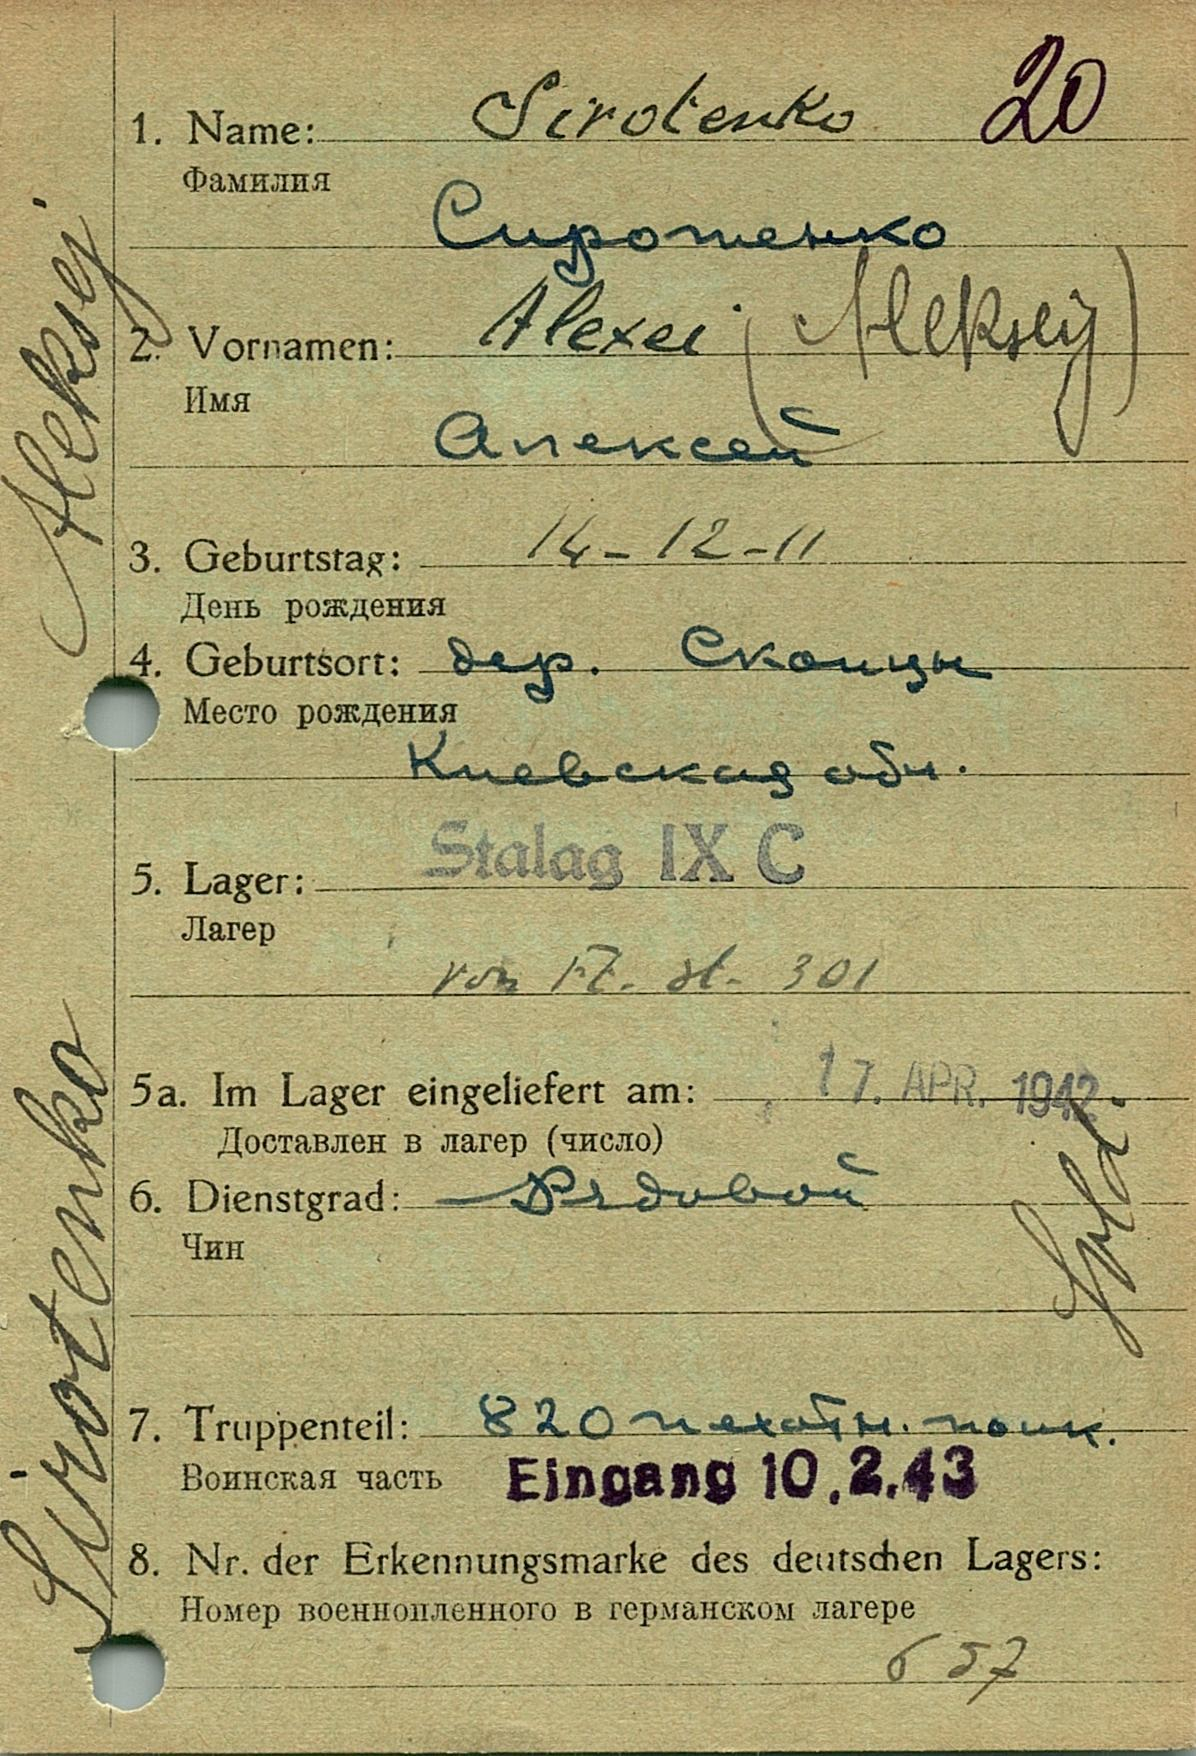 20
1. Name: Sirotenko
Фамилия
Сиротенко
2. Vornamen: Alexei (Aleksej)
Имя
Алексей
3. Geburtstag: 14-12-11
День рождения
4. Geburtsort: дер. Скопцы
Место рождения
Киевская обл.
5. Lager: Stalag IX C
Лагер
von Fl. St. 301
5a. Im Lager eingeliefert am: 17. APR. 1942
Доставлен в лагер (число)
6. Dienstgrad: Рядовой
Чин
Sold.
7. Truppenteil: 820 пехотн. полк.
Воинская часть
Eingang 10.2.43
8. Nr. der Erkennungsmarke des deutschen Lagers:
Номер военнопленного в германском лагере
657
Sirotenko Aleksej